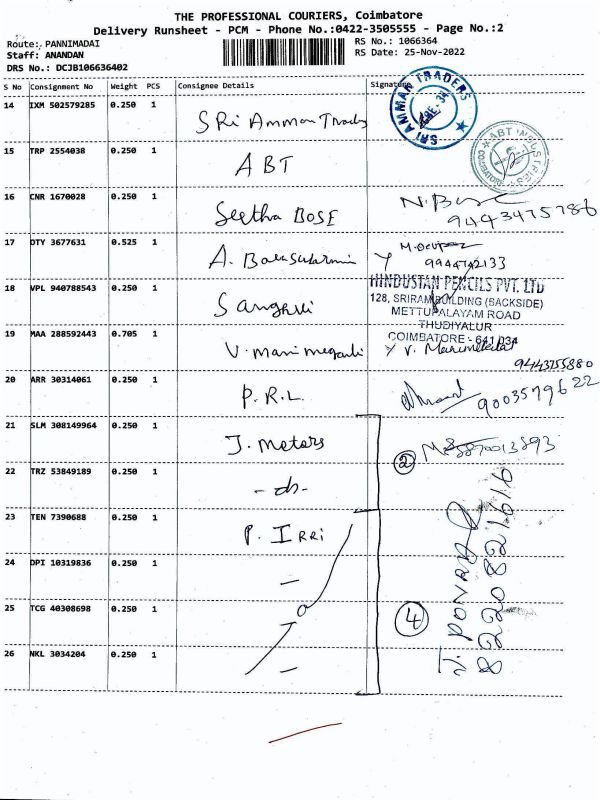 THE PROFESSIONAL COURIERS, Coimbatore
Delivery Runsheet - PCM - Phone No.:0422-3505555 - Page No.:2
Route: PANNIMADAI
Staff: ANANDAN
DRS No.: DCJB106636402
RS No.: 1066364
RS Date: 25-Nov-2022
S No Consignment No Weight PCS Consignee Details Signature
14 IXM 502579285 0.250 1 SRi Amman Traders
SRI AMMAN TRADERS
15 TRP 2554038 0.250 1 ABT
ABT INDUSTRIES
COIMBATORE
16 CNR 1670028 0.250 1 Seetha BOSE
9443475786
17 DTY 3677631 0.525 1
9944742133
18 VPL 940788543 0.250 1 Sanghvi
HINDUSTAN PENCILS PVT. LTD
128, SRIRAM BUILDING (BACKSIDE)
METTUPALAYAM ROAD
THUDIYALUR
COIMBATORE - 641 034
19 MAA 288592443 0.705 1
9443755880
20 ARR 30314061 0.250 1 P.R.L.
9003579622
21 SLM 308149964 0.250 1 J. Meters
2
22 TRZ 53849189 0.250 1 - do -
23 TEN 7390688 0.250 1 P. IRRi
24 DPI 10319836 0.250 1 -
25 TCG 40308698 0.250 1
4
26 NKL 3034204 0.250 1 -
8220821616